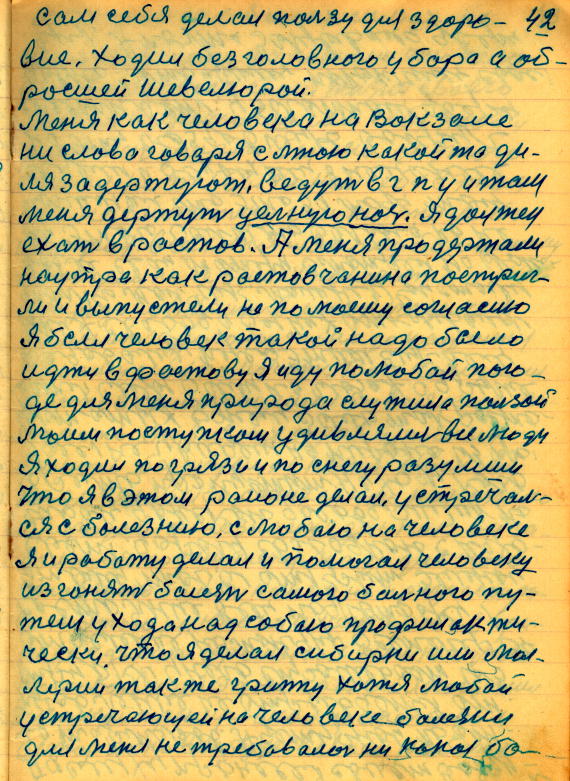 сам себя делал ползу для здоро- 42
вие. Ходил без головного убора а об-
росшей шевелюрой.
Меня как человека на вокзале
ни слова говаря с мною какой та ди-
ля задержуют, ведут в г п у и там
меня держут целную ноч. Я должен
ехат в растов. А меня продержали
наутра как ростовчанина постриг-
ли и выпустели не по моему согласию
я бели человек такой надо быело
идти в фостову я иду по любой пого-
де для меня природа служила ползой
моим поступкам удивлялис все люди
я ходил по грязи и по снегу разумши
что я в этом районе делал. устречал-
ся с болезнию, с любою на человеке
я и работу делал и помогал человеку
изгонят болезн самого болного пу-
тем ухода над собою профилакти-
чески. что я делал сибирки или мол-
лерии также грипу хотя любой
устречающей на человеке болезни
для меня не требовалос ни какой бо-